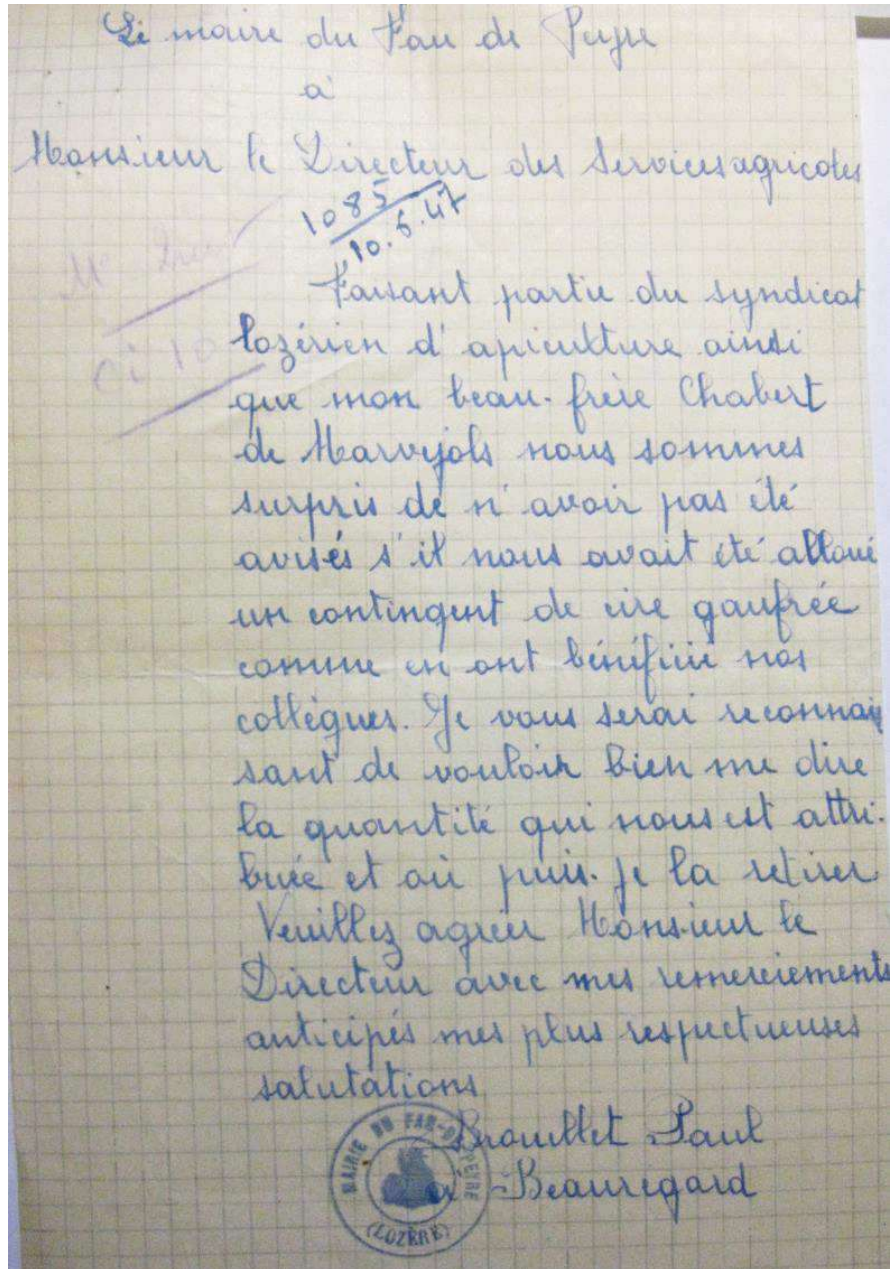 Le maire du Fau de Peyre
à
Monsieur le Directeur des Services agricoles
1085
10.6.47
Faisant partie du syndicat
lozérien d'apiculture ainsi
que mon beau-frère Chabert
de Marvejols nous sommes
surpris de n'avoir pas été
avisés s'il nous avait été alloué
un contingent de cire gaufrée
comme en ont bénéficié nos
collègues. Je vous serai reconnais
sant de vouloir bien me dire
la quantité qui nous est attri-
buée et où puis-je la retirer
Veuillez agréer Monsieur le
Directeur avec mes remerciements
anticipés mes plus respectueuses
salutations
Brouillet Paul
à Beauregard
MAIRIE DU FAU-DE-PEYRE
(LOZÈRE)